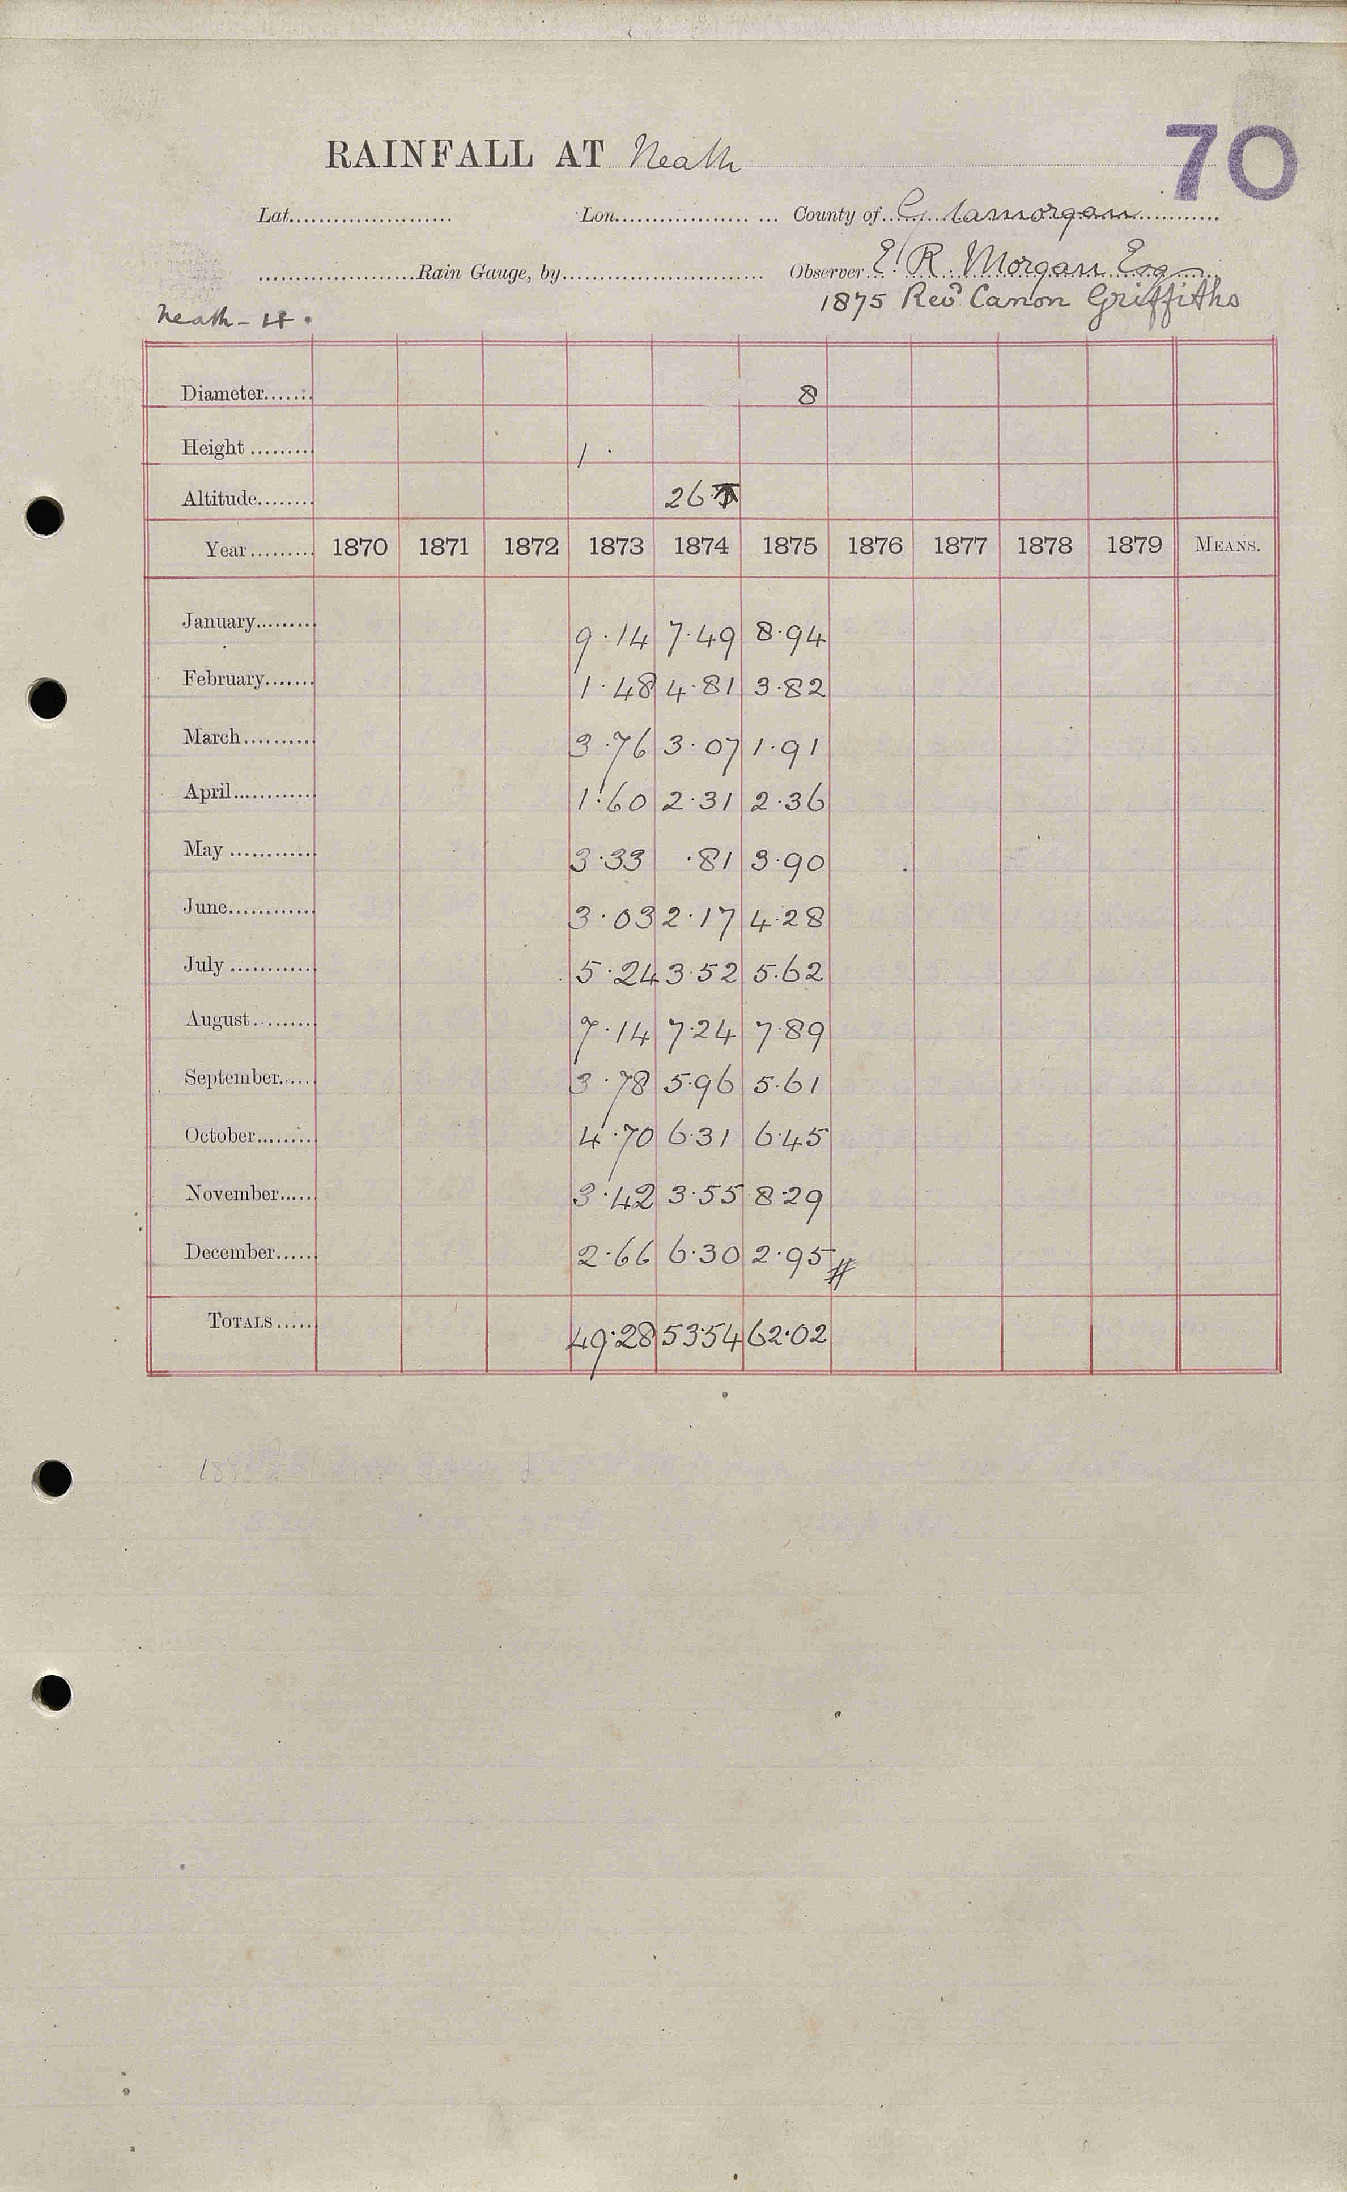 70
RAINFALL AT Neath
Lat. Lon. County of Glamorgan
Rain Gauge, by Observer E. R. Morgan Esq
1875 Revd Canon Griffiths
Neath - 4.
Diameter 8
Height 1
Altitude 26
Year 1870 1871 1872 1873 1874 1875 1876 1877 1878 1879 MEANS.
January 9.14 7.49 8.94
February 1.48 4.81 3.82
March 3.76 3.07 1.91
April 1.60 2.31 2.36
May 3.33 .81 3.90
June 3.03 2.17 4.28
July 5.24 3.52 5.62
August 7.14 7.24 7.89
September 3.78 5.96 5.61
October 4.70 6.31 6.45
November 3.42 3.55 8.29
December 2.66 6.30 2.95 #
TOTALS 49.28 53.54 62.02